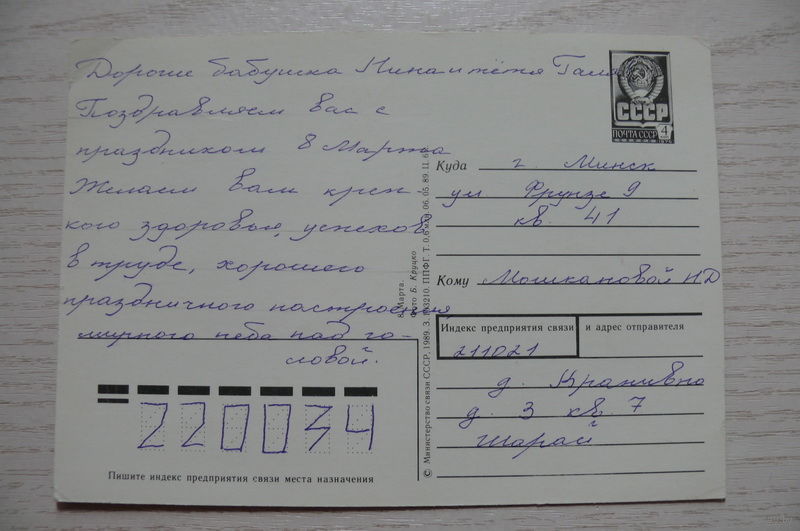 Дорогие бабушка Нина и тётя Галя
Поздравляем вас с
праздником 8 Марта
Желаем вам креп-
кого здоровья, успехов
в труде, хорошего
праздничного настроения
мирного неба над го-
ловой.
СССР
ПОЧТА СССР 4
Куда г. Минск
ул Фрунзе 9
кв. 41
Кому Мошкановой Н Д
Индекс предприятия связи и адрес отправителя
211021
д. Крапивно
д. 3 кв. 7
Шарай
8 Марта.
Фото Б. Круцко
© Министерство связи СССР. 1989. З. ППФГ. Т. 06.05.89. П. 6
220034
Пишите индекс предприятия связи места назначения